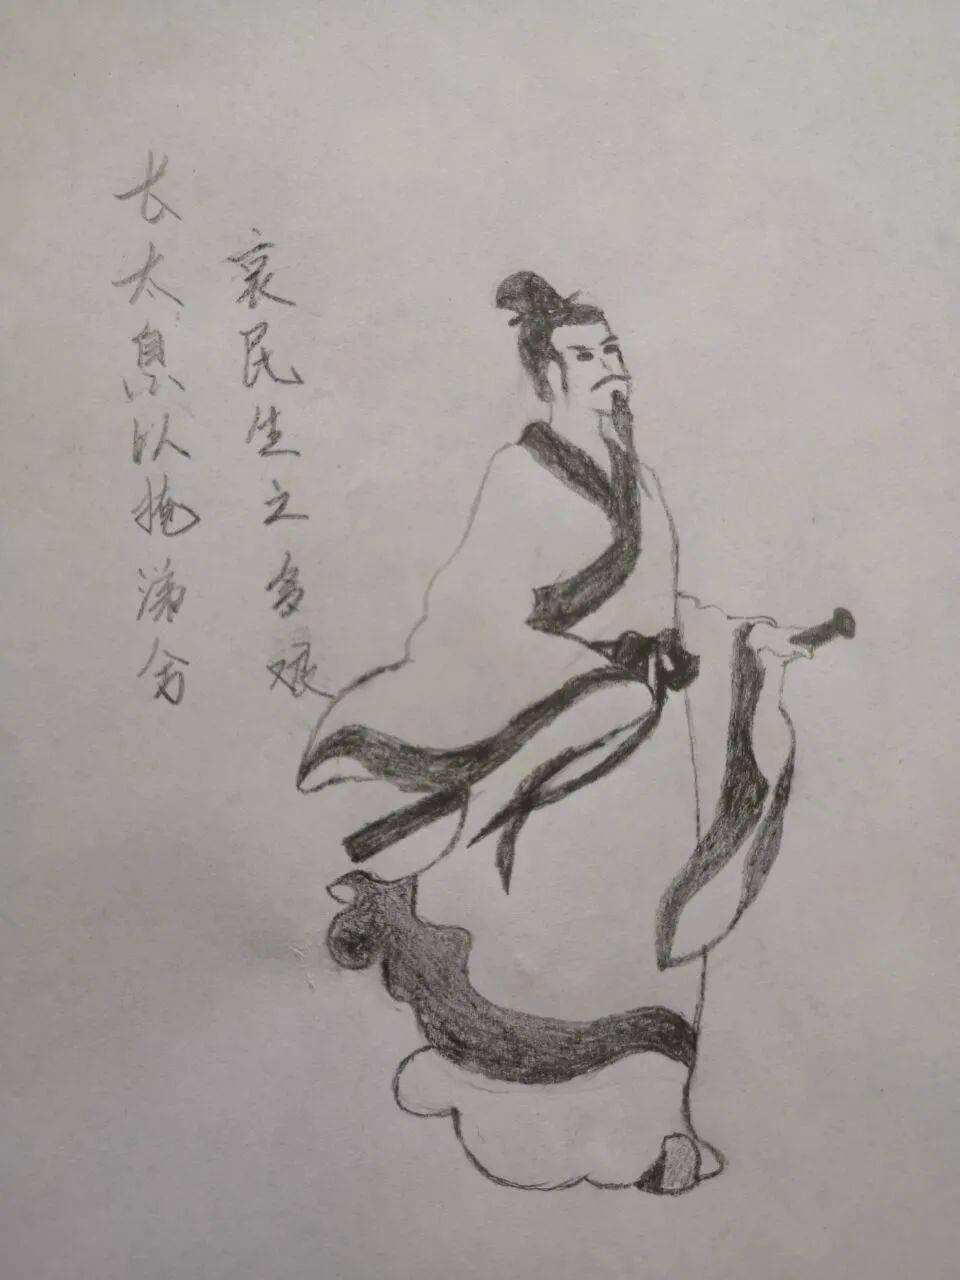 长太息以掩涕兮
哀民生之多艰